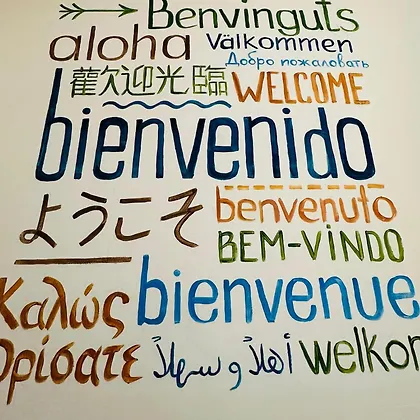 Benvinguts
aloha
Välkommen
Добро пожаловать
歡迎光臨
WELCOME
bienvenido
ようこそ
benvenuto
BEM-VINDO
Καλώς
bienvenue
Ορίσατε
أهلاً و سهلاً
welkom